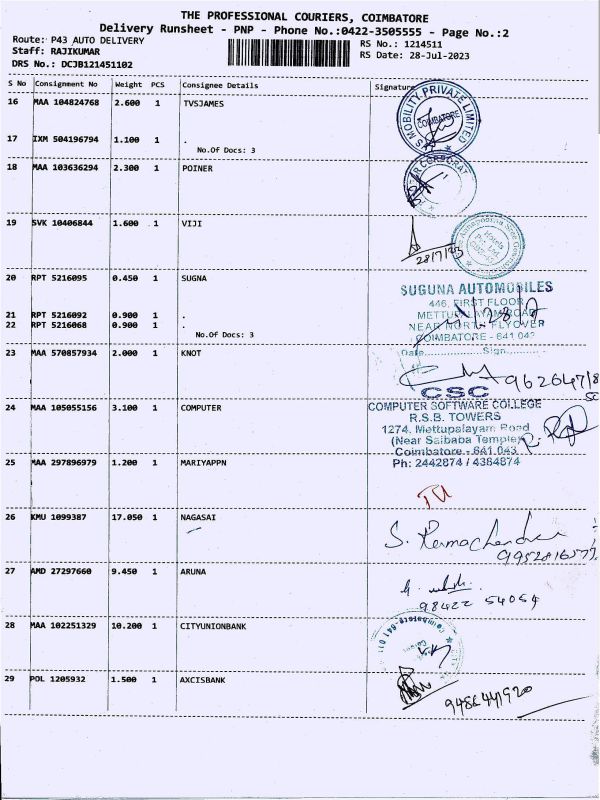 THE PROFESSIONAL COURIERS, COIMBATORE
Delivery Runsheet - PNP - Phone No.:0422-3505555 - Page No.:2
Route: P43 AUTO DELIVERY
RS No.: 1214511
Staff: RAJIKUMAR
RS Date: 28-Jul-2023
DRS No.: DCJB121451102
S No Consignment No Weight PCS Consignee Details Signature
16 MAA 104824768 2.600 1 TVSJAMES
S MOBILITY PRIVATE LIMITED
COIMBATORE
17 IXM 504196794 1.100 1 .
No.Of Docs: 3
18 MAA 103636294 2.300 1 POINER
19 SVK 10406844 1.600 1 VIJI
28/7/23
20 RPT 5216095 0.450 1 SUGNA
SUGUNA AUTOMOBILES
446, FIRST FLOOR
METTUPALAYAM ROAD
NEAR NORTH FLYOVER
COIMBATORE - 641 043
Date..............Sign..............
21 RPT 5216092 0.900 1 .
22 RPT 5216068 0.900 1 .
No.Of Docs: 3
23 MAA 570857934 2.000 1 KNOT
CSC
24 MAA 105055156 3.100 1 COMPUTER
COMPUTER SOFTWARE COLLEGE
R.S.B. TOWERS
1274, Mettupalayam Road
(Near Saibaba Temple)
Coimbatore - 641 043
Ph: 2442874 / 4384874
25 MAA 297896979 1.200 1 MARIYAPPN
26 KMU 1099387 17.050 1 NAGASAI
27 AMD 27297660 9.450 1 ARUNA
98422 54054
28 MAA 102251329 10.200 1 CITYUNIONBANK
29 POL 1205932 1.500 1 AXCISBANK
9486441920